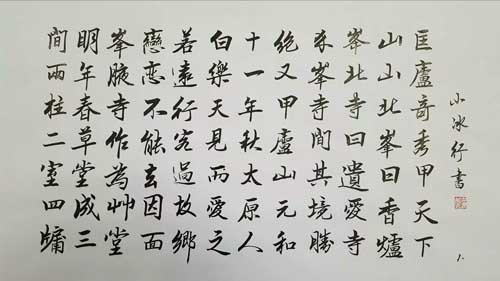 小冰行書
匡廬竒秀甲天下
山山北峯曰香爐
峯北寺曰遺愛寺
介峯寺間其境勝
絶又甲廬山元和
十一年秋太原人
白樂天見而愛之
若遠行客過故鄉
戀戀不能去因面
峯腋寺作為艸堂
明年春草堂成三
間兩柱二室四牖